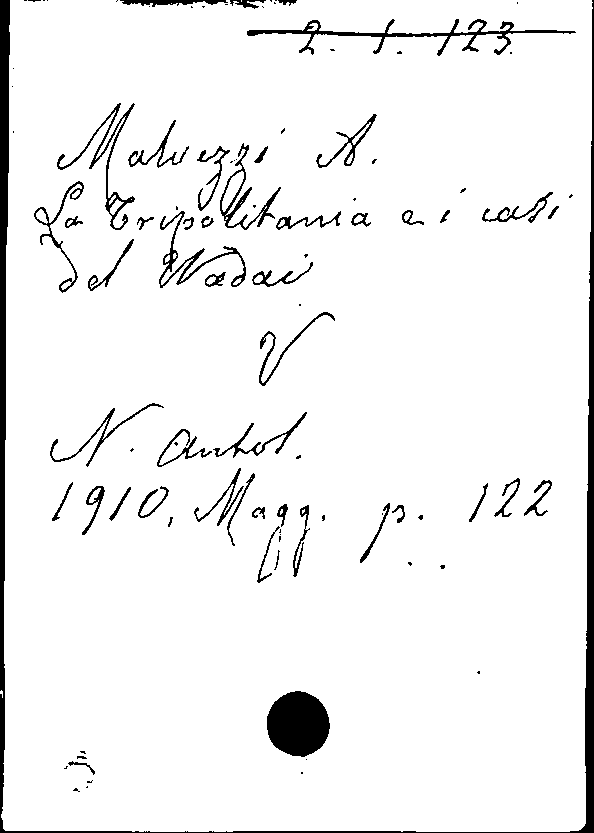 2. 1. 123
Malvezzi A.
La Tripolitania e i casi
del Wadai
V
N. Antol.
1910, Magg. p. 122